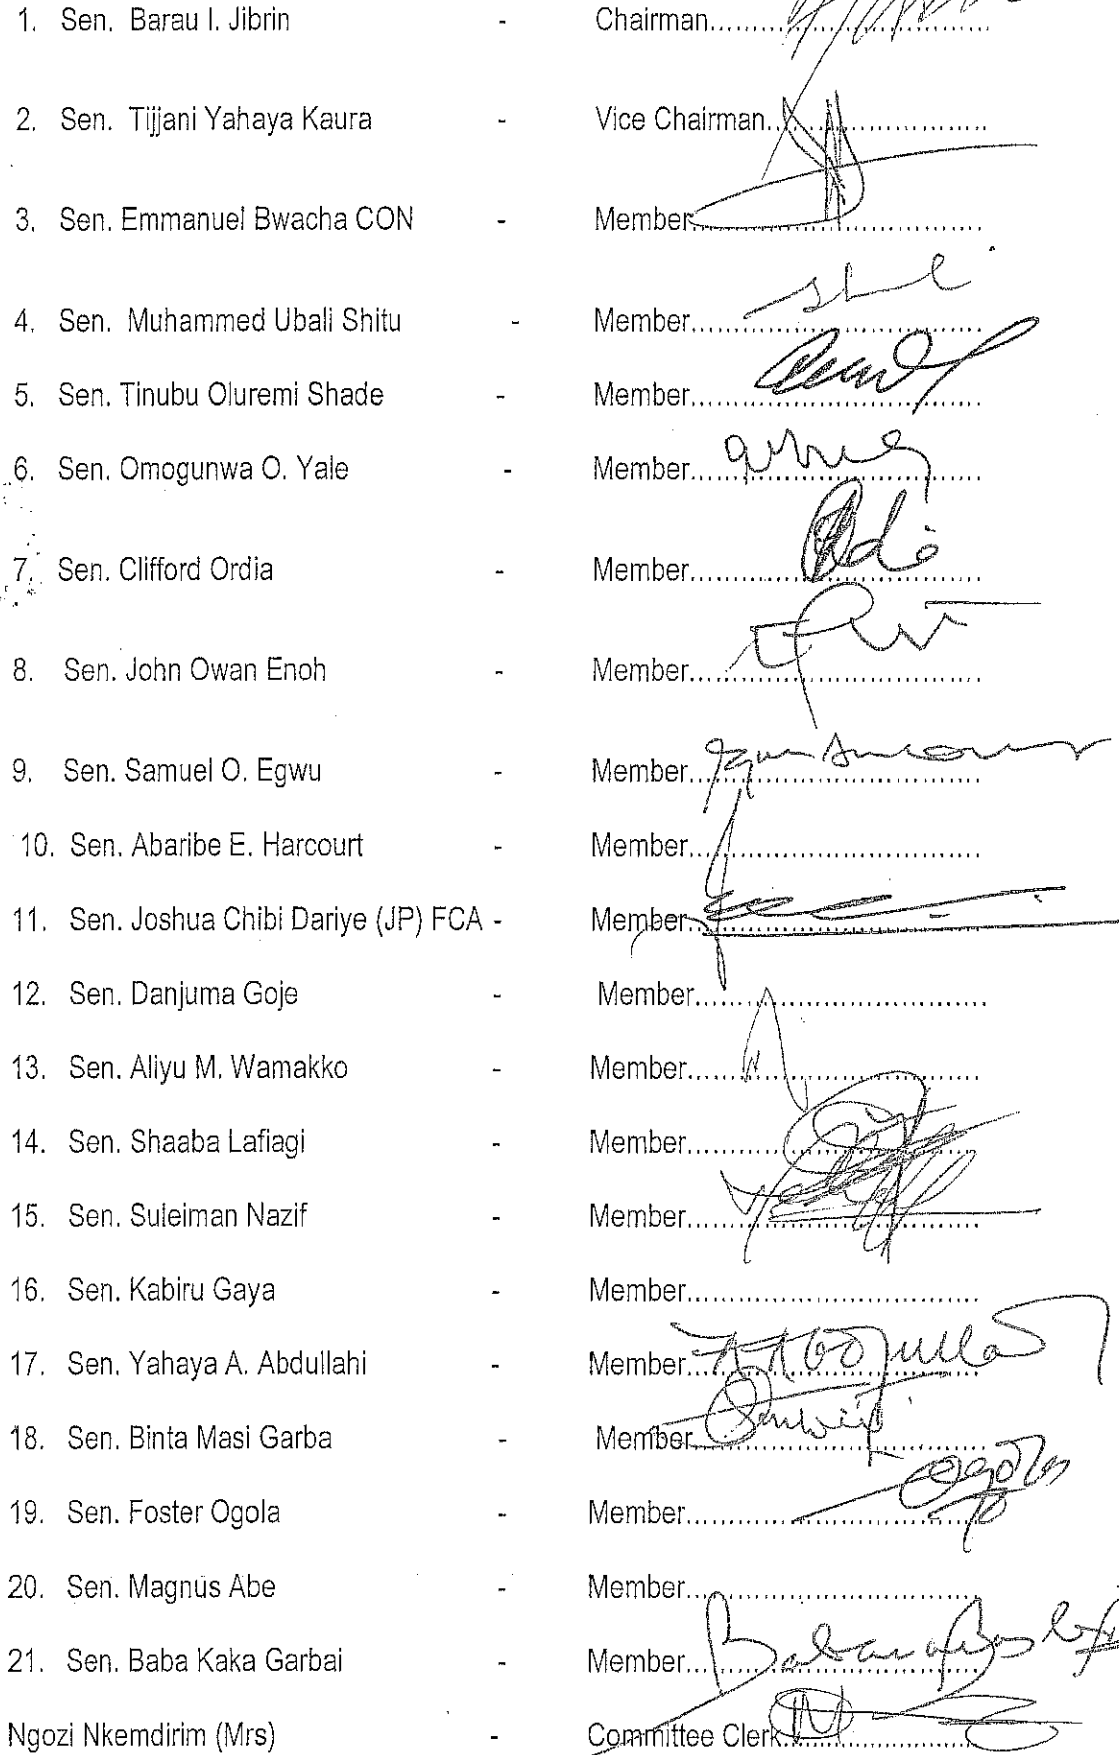 1. Sen. Barau I. Jibrin - Chairman....................
2. Sen. Tijjani Yahaya Kaura - Vice Chairman....................
3. Sen. Emmanuel Bwacha CON - Member....................
4. Sen. Muhammed Ubali Shitu - Member....................
5. Sen. Tinubu Oluremi Shade - Member....................
6. Sen. Omogunwa O. Yale - Member....................
7. Sen. Clifford Ordia - Member....................
8. Sen. John Owan Enoh - Member....................
9. Sen. Samuel O. Egwu - Member....................
10. Sen. Abaribe E. Harcourt - Member....................
11. Sen. Joshua Chibi Dariye (JP) FCA - Member....................
12. Sen. Danjuma Goje - Member....................
13. Sen. Aliyu M. Wamakko - Member....................
14. Sen. Shaaba Lafiagi - Member....................
15. Sen. Suleiman Nazif - Member....................
16. Sen. Kabiru Gaya - Member....................
17. Sen. Yahaya A. Abdullahi - Member....................
18. Sen. Binta Masi Garba - Member....................
19. Sen. Foster Ogola - Member.................... Ogola
20. Sen. Magnus Abe - Member....................
21. Sen. Baba Kaka Garbai - Member....................
Ngozi Nkemdirim (Mrs) - Committee Clerk....................